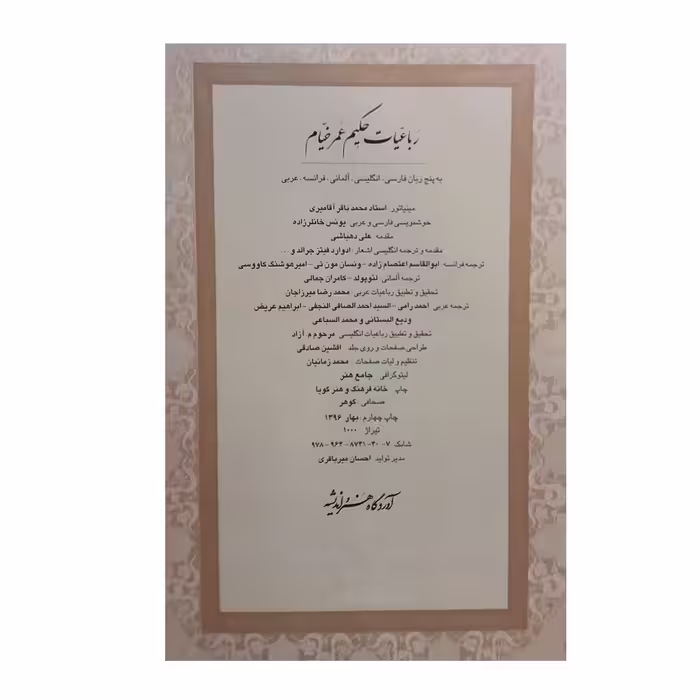 رباعیات حکیم عمر خیام
به پنج زبان فارسی، انگلیسی، آلمانی، فرانسه، عربی
مینیاتور: استاد محمد باقر آقامیری
خوشنویسی فارسی و عربی: یونس خانلرزاده
مقدمه: علی دهباشی
مقدمه و ترجمه انگلیسی اشعار: ادوارد فیتز جرالد و ...
ترجمه فرانسه: ابوالقاسم اعتصام زاده - ونسان مون تی - امیرهوشنگ کاووسی
ترجمه آلمانی: لئوپولد - کامران جمالی
تحقیق و تطبیق رباعیات عربی: محمد رضا میرزاجان
ترجمه عربی: احمد رامی - السید احمد الصافی النجفی - ابراهیم عریض
ودیع البستانی و محمد السباعی
تحقیق و تطبیق رباعیات انگلیسی: مرحوم م. آزاد
طراحی صفحات و روی جلد: افشین صادقی
تنظیم و لیات صفحات: محمد زمانیان
لیتوگرافی: جامع هنر
چاپ: خانه فرهنگ و هنر گویا
صحافی: گوهر
چاپ چهارم: بهار ۱۳۹۶
تیراژ: ۱۰۰۰
شابک: ۷-۳۰-۸۷۳۱-۹۶۴-۹۷۸
مدیر تولید: احسان میرباقری